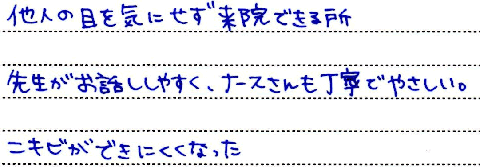 他人の目を気にせず来院できる所
先生がお話ししやすく、ナースさんも丁寧でやさしい。
ニキビができにくくなった